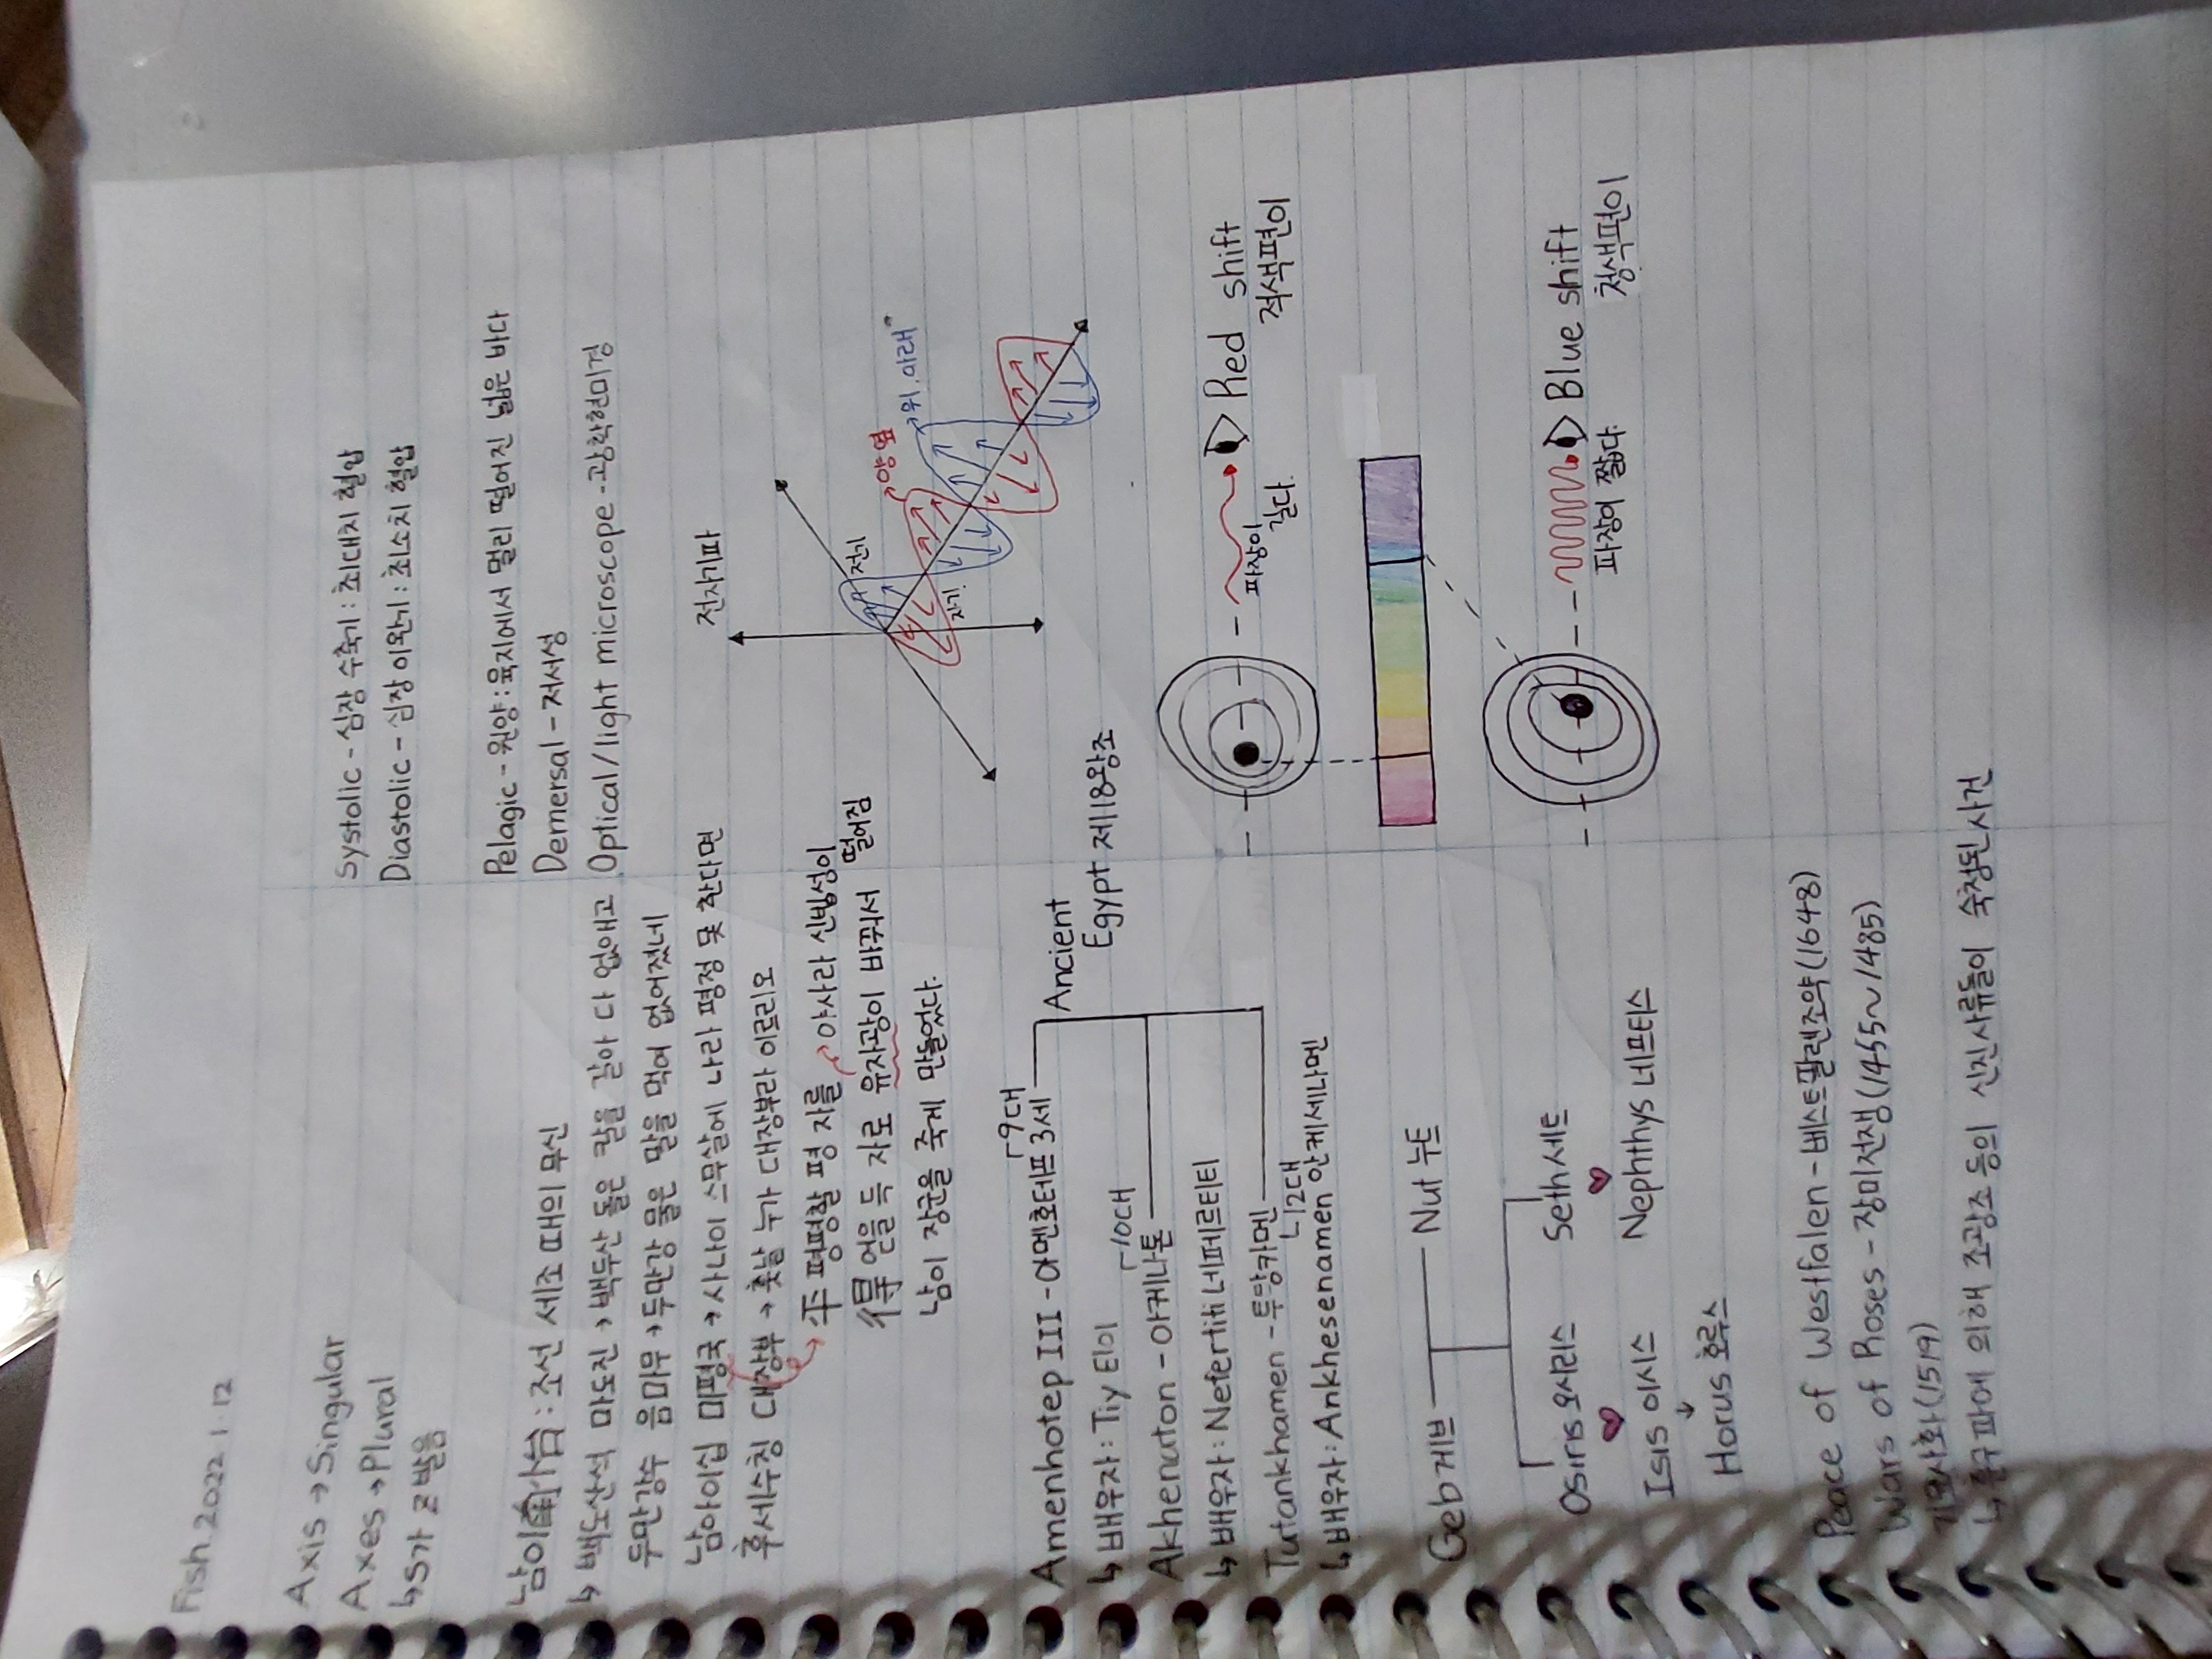 Fish.2022.1.12
Axis → Singular
Axes → Plural
↳ S가 Z 발음
Systolic - 심장 수축기 : 최대치 혈압
Diastolic - 심장 이완기 : 최소치 혈압
Pelagic - 원양 : 육지에서 멀리 떨어진 넓은 바다
Demersal - 저서성
Optical/light microscope - 광학현미경
남이(南怡) : 조선 세조 때의 무신
↳ 백두산석 마도진 → 백두산 돌은 칼을 갈아 다 없애고
두만강수 음마무 → 두만강 물은 말을 먹여 없어졌네
남아이십 미평국 → 사나이 스무살에 나라 평정 못 한다면
후세수칭 대장부 → 훗날 누가 대장부라 이르리오
平 평평할 평 자를 → 야사라 신빙성이
떨어짐
得 얻을 득 자로 유자광이 바꿔서
남이 장군을 죽게 만들었다.
전자기파
전기
자기
양옆
위, 아래
Ancient
Egypt 제18왕조
9대
Amenhotep III - 아멘호테프 3세
↳ 배우자 : Tiy 티이
10대
Akhenaton - 아케나톤
↳ 배우자 : Nefertiti 네페르티티
Tutankhamen - 투탕카멘
12대
↳ 배우자 : Ankhesenamen 안케세나멘
파장이
길다.
Red shift
적색편이
파장이 짧다.
Blue shift
청색편이
Geb 게브 Nut 누트
Osiris 오시리스 Seth 세트
Isis 이시스 Nephthys 네프티스
↓
Horus 호루스
Peace of Westfalen - 베스트팔렌조약(1648)
Wars of Roses - 장미전쟁(1455~1485)
기묘사화(1519)
↳ 훈구파에 의해 조광조 등의 신진사류들이 숙청된 사건